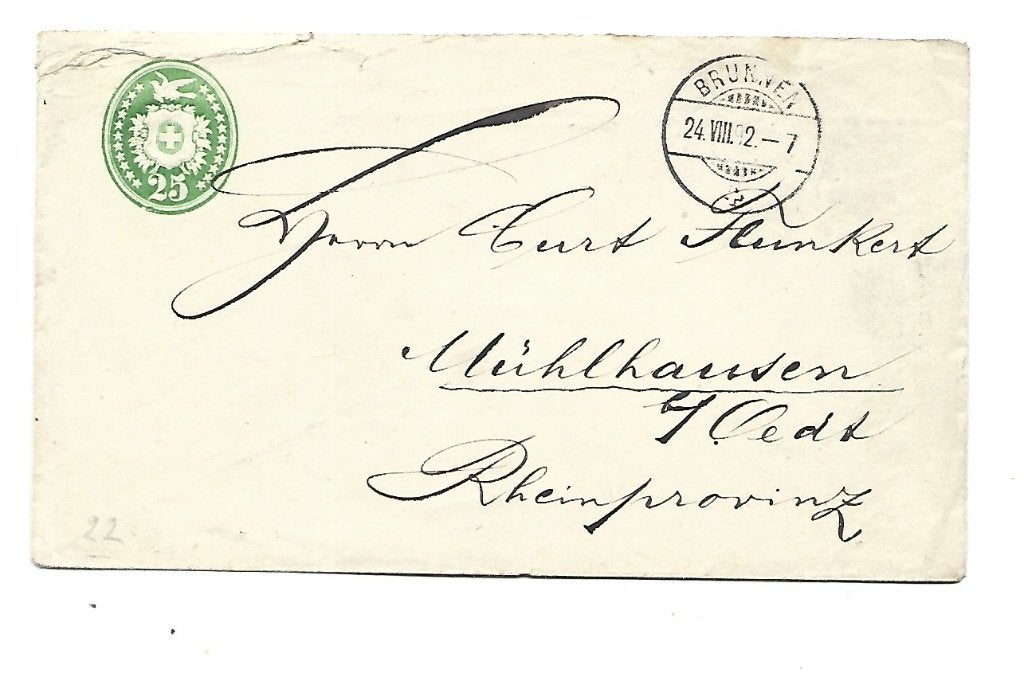 25
BRUNNEN
24.VIII.92.–7
Herrn Curt Flunkert
Mühlhausen
b/ Oedt
Rheinprovinz
22